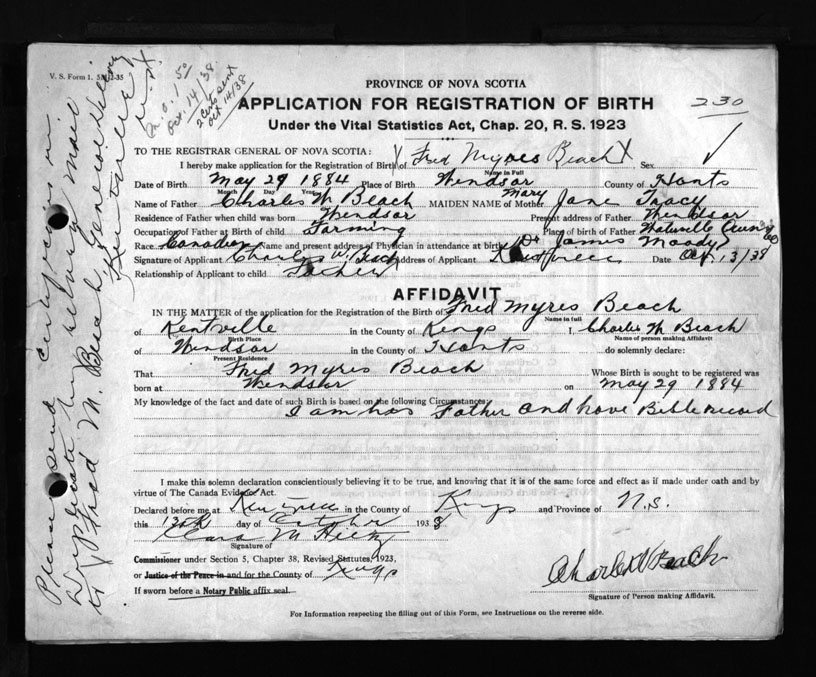 V. S. Form 1.
PROVINCE OF NOVA SCOTIA
APPLICATION FOR REGISTRATION OF BIRTH
230
Under the Vital Statistics Act, Chap. 20, R. S. 1923
TO THE REGISTRAR GENERAL OF NOVA SCOTIA:
I hereby make application for the Registration of Birth of Fred Myres Beach Sex
Name in Full
Date of Birth May 29 1884 Place of Birth Windsor County of Hants
Month Day Year
Name of Father Charles W Beach MAIDEN NAME of Mother Mary Jane Tracy
Residence of Father when child was born Windsor Present address of Father Windsor
Occupation of Father at Birth of child Farming Place of birth of Father
Race Canadian Name and present address of Physician in attendance at birth Dr James Moody
Signature of Applicant Charles W. Beach Address of Applicant Kentville Date Oct 13/38
Relationship of Applicant to child Father
AFFIDAVIT
IN THE MATTER of the application for the Registration of the Birth of Fred Myres Beach
Name in full
of Kentville in the County of Kings I, Charles W Beach
Birth Place Name of person making Affidavit
of Windsor in the County of Hants do solemnly declare:
Present Residence
That Fred Myres Beach Whose Birth is sought to be registered was
born at Windsor on May 29 1884
My knowledge of the fact and date of such Birth is based on the following Circumstances:
I am his Father and have Bible record
I make this solemn declaration conscientiously believing it to be true, and knowing that it is of the same force and effect as if made under oath and by
virtue of The Canada Evidence Act.
Declared before me at Kentville in the County of Kings and Province of N.S.
this 13th day of October 1938
Clara M
Signature of
Commissioner under Section 5, Chapter 38, Revised Statutes, 1923,
or Justice of the Peace in and for the County of Kings
If sworn before a Notary Public affix seal.
Charles W Beach
Signature of Person making Affidavit.
For Information respecting the filling out of this Form, see Instructions on the reverse side.
Please send certificates in
Duplicate by return mail
to Fred M. Beach General Delivery
Kentville
N.S.
M.O. 1.50
Oct. 14/38
2 Certs sent
Oct 14/38